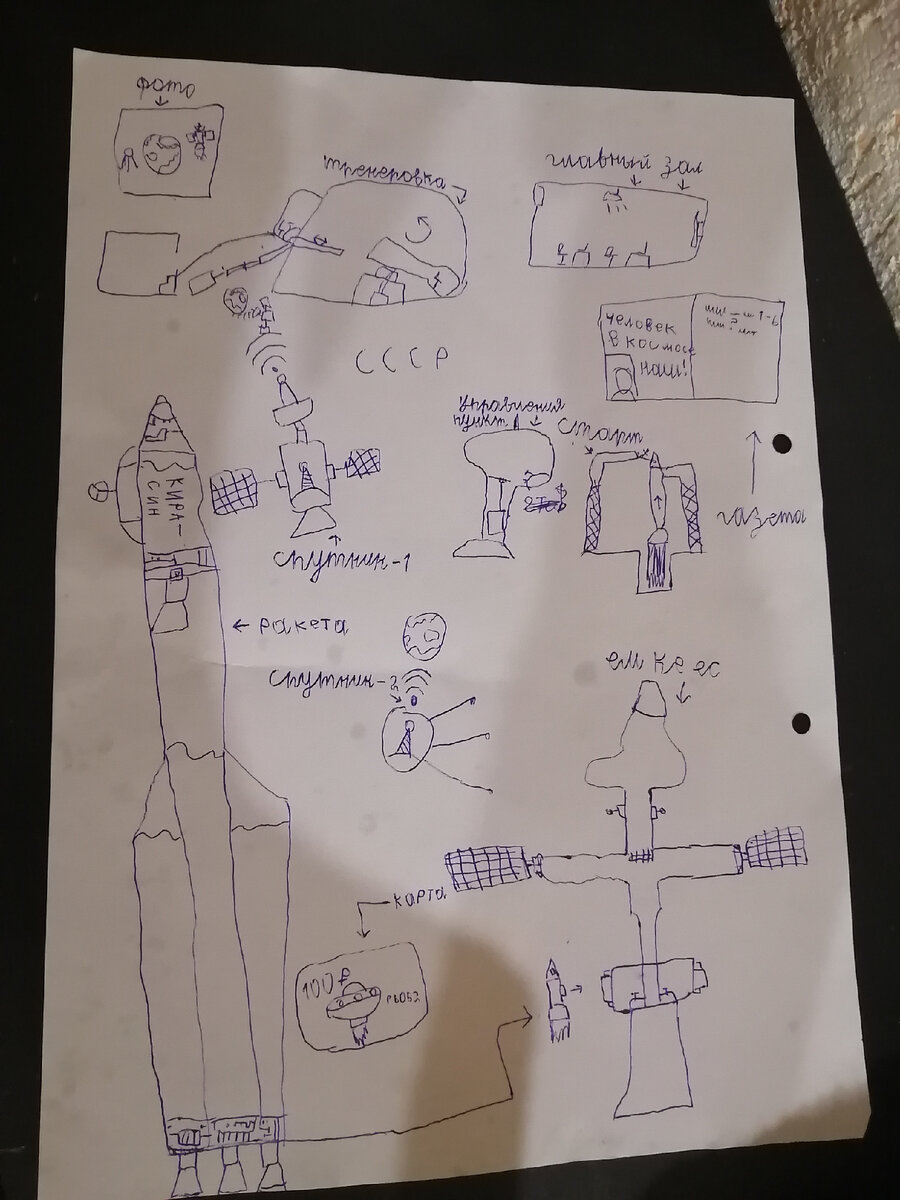 фото
тренеровка
главный зал
СССР
человек
в космосе
наш!
управления
пункт
старт
газета
КИРА-
СИН
спутник-1
← ракета
спутник-2
ем ке ес
карта
100₽